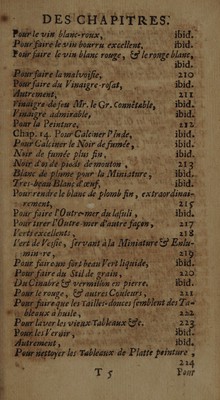 DES CHAPITRES.
Pour le vin blanc-roux, ibid.
Pour faire le vin bourru excellent, ibid.
Pour faire le vin blanc rouge, & le rouge blanc,
ibid.
Pour faire la malvoisie, 210
Pour faire du Vinaigre-rosat, ibid.
Autrement, 211
Vinaigre de feu Mr. le Gr. Connêtable, ibid.
Vinaigre admirable, ibid.
Pour la Peinture, 212
Chap. 14. Pour Calciner l'Inde, ibid.
Pour Calciner le Noir de fumée, ibid.
Noir de fumée plus fin, ibid.
Noir d'os de pieds de mouton, 213
Blanc de plume pour la Miniature, ibid.
Tres-beau Blanc d'œuf, ibid.
Pour rendre le blanc de plomb fin, extraordinai-
rement, 215
Pour faire l'Outre-mer du lasuli, ibid.
Pour tirer l'Outre-mer d'autre façon, 217
Vert excellent, 218
Vert de Vessie, servant à la Miniature & Enlu-
minure, 219
Pour faire un fort beau Vert liquide, ibid.
Pour faire du Stil de grain, 220
Du Cinabre & vermillon en pierre. ibid.
Pour le rouge, & autres Couleurs, 221
Pour faire que les Tailles-douces semblent des Ta-
bleaux à huile, 222
Pour laver les vieux Tableaux &c. 223
Pour les Verdir, ibid.
Autrement, ibid.
Pour nettoyer les Tableaux de Platte peinture,
224
T 5 Pour